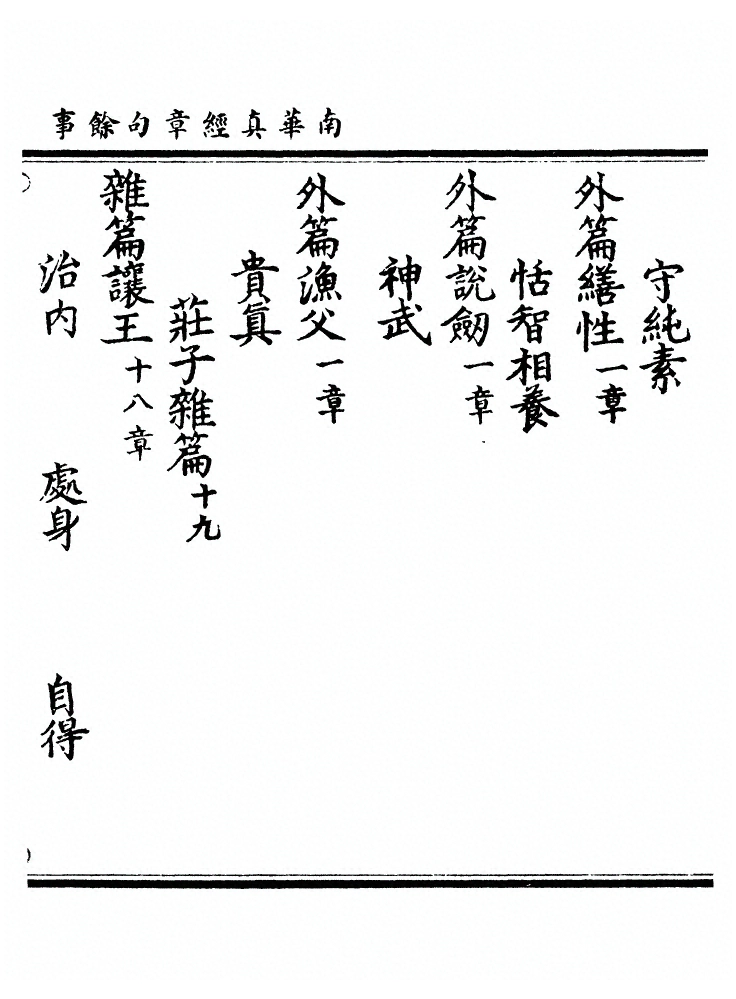 南華真經章句餘事
守純素
外篇繕性一章
恬智相養
外篇說劒一章
神武
外篇漁父一章
貴眞
莊子雜篇十九
雜篇讓王十八章
治内 處身 自得